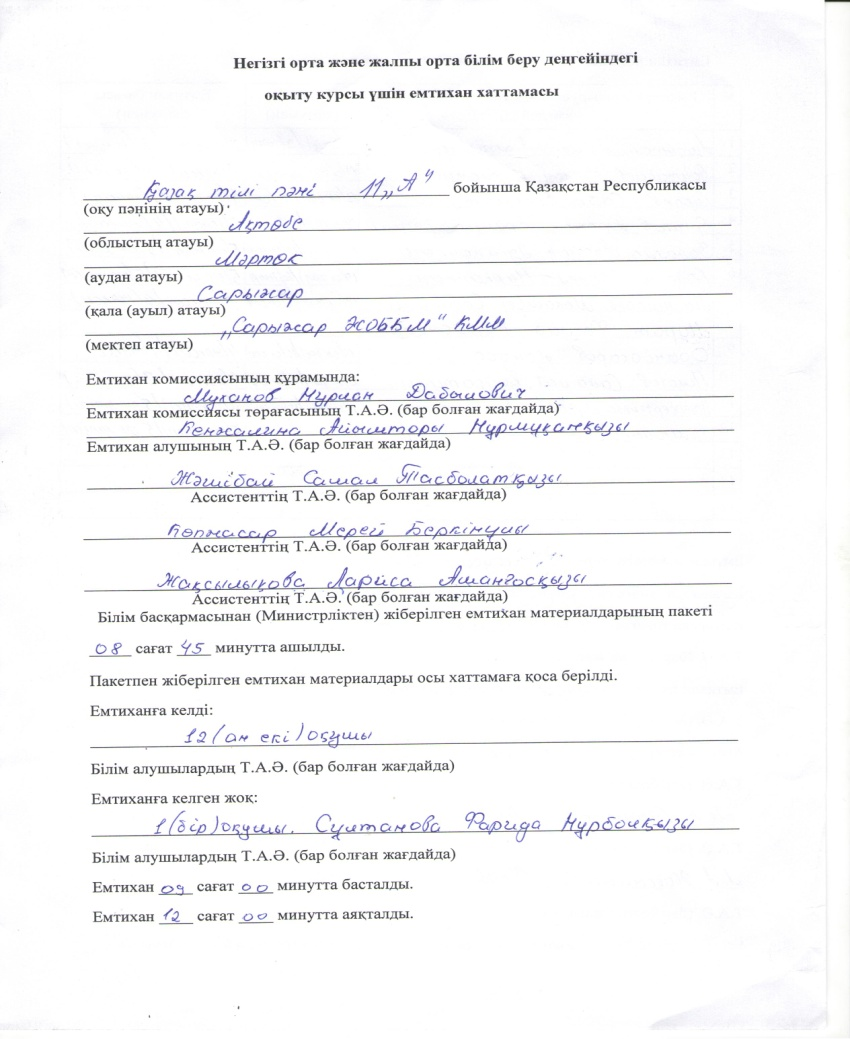 Негізгі орта және жалпы орта білім беру деңгейіндегі
оқыту курсы үшін емтихан хаттамасы
Қазақ тілі пәні 11 „А“ бойынша Қазақстан Республикасы
(оқу пәнінің атауы)
Ақтөбе
(облыстың атауы)
Мәртөк
(аудан атауы)
Сарыжар
(қала (ауыл) атауы)
„Сарыжар ЖОББМ“ КММ
(мектеп атауы)
Емтихан комиссиясының құрамында:
Муканов Нурлан Дабылович
Емтихан комиссиясы төрағасының Т.А.Ә. (бар болған жағдайда)
Кенжалина Айымторы Нұрмұқанқызы
Емтихан алушының Т.А.Ә. (бар болған жағдайда)
Жәшібай Самал Тасболатқызы
Ассистенттің Т.А.Ә. (бар болған жағдайда)
Көпжасар Мерей Беркінұлы
Ассистенттің Т.А.Ә. (бар болған жағдайда)
Жақсылықова Лариса Амангосқызы
Ассистенттің Т.А.Ә. (бар болған жағдайда)
Білім басқармасынан (Министрліктен) жіберілген емтихан материалдарының пакеті
08 сағат 45 минутта ашылды.
Пакетпен жіберілген емтихан материалдары осы хаттамаға қоса берілді.
Емтиханға келді:
12 (он екі) оқушы
Білім алушылардың Т.А.Ә. (бар болған жағдайда)
Емтиханға келген жоқ:
1 (бір) оқушы. Сұлтанова Фарида Нұрболқызы
Білім алушылардың Т.А.Ә. (бар болған жағдайда)
Емтихан 09 сағат 00 минутта басталды.
Емтихан 12 сағат 00 минутта аяқталды.